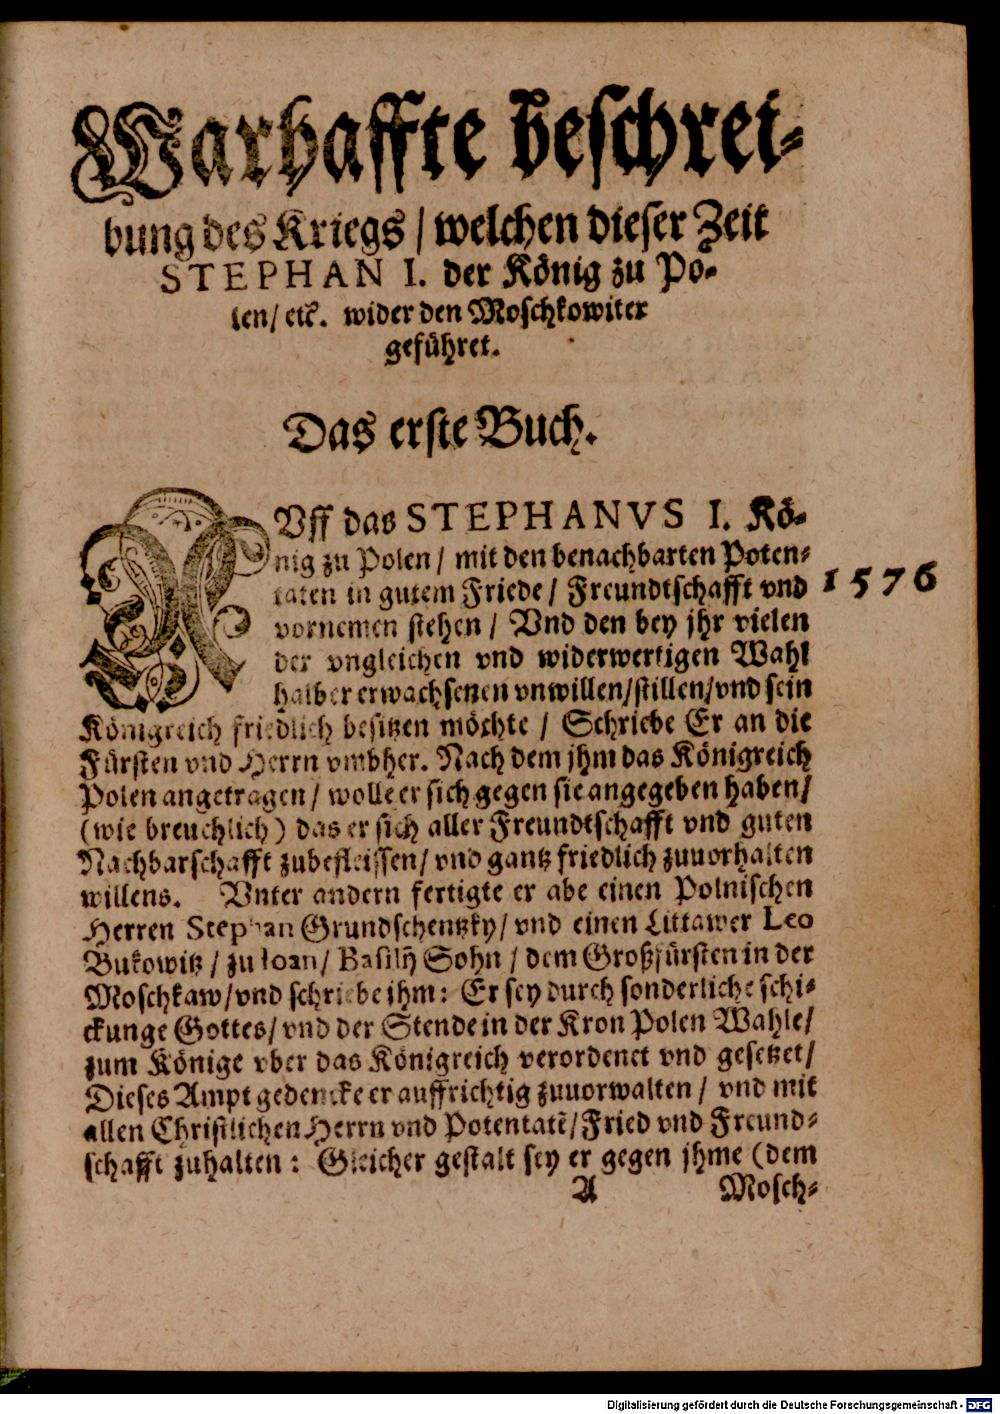 Warhaffte beschrei-
bung des Kriegs / welchen dieser Zeit
STEPHAN I. der König zu Po-
len / etc. wider den Moschkowiter
geführet.
Das erste Buch.
AVff das STEPHANVS I. Kö-
nig zu Polen / mit den benachbarten Poten-
taten in gutem Friede / Freundtschafft vnd
1576
vornemen stehen / Vnd den bey jhr vielen
der vngleichen vnd widerwertigen Wahl
halber erwachsenen vnwillen / stillen / vnd sein
Königreich friedlich besitzen möchte / Schriebe Er an die
Fürsten vnd Herrn vmbher. Nach dem jhm das Königreich
Polen angetragen / wolle er sich gegen sie angegeben haben /
(wie breuchlich) das er sich aller Freundtschafft vnd guten
Nachbarschafft zubefleissen / vnd gantz friedlich zuuorhalten
willens. Vnter andern fertigte er abe einen Polnischen
Herren Stephan Grundschentzky / vnd einen Littawer Leo
Bukowitz / zu Ioan / Basilij Sohn / dem Großfürsten in der
Moschkaw / vnd schriebe jhm: Er sey durch sonderliche schi-
ckunge Gottes / vnd der Stende in der Kron Polen Wahle /
zum Könige vber das Königreich verordenet vnd gesetzet /
Dieses Ampt gedencke er auffrichtig zuuorwalten / vnd mit
allen Christlichen Herrn vnd Potentatẽ / Fried vnd Freund-
schafft zuhalten: Gleicher gestalt sey er gegen jhme (dem
A Mosch-
Digitalisierung gefördert durch die Deutsche Forschungsgemeinschaft - DFG